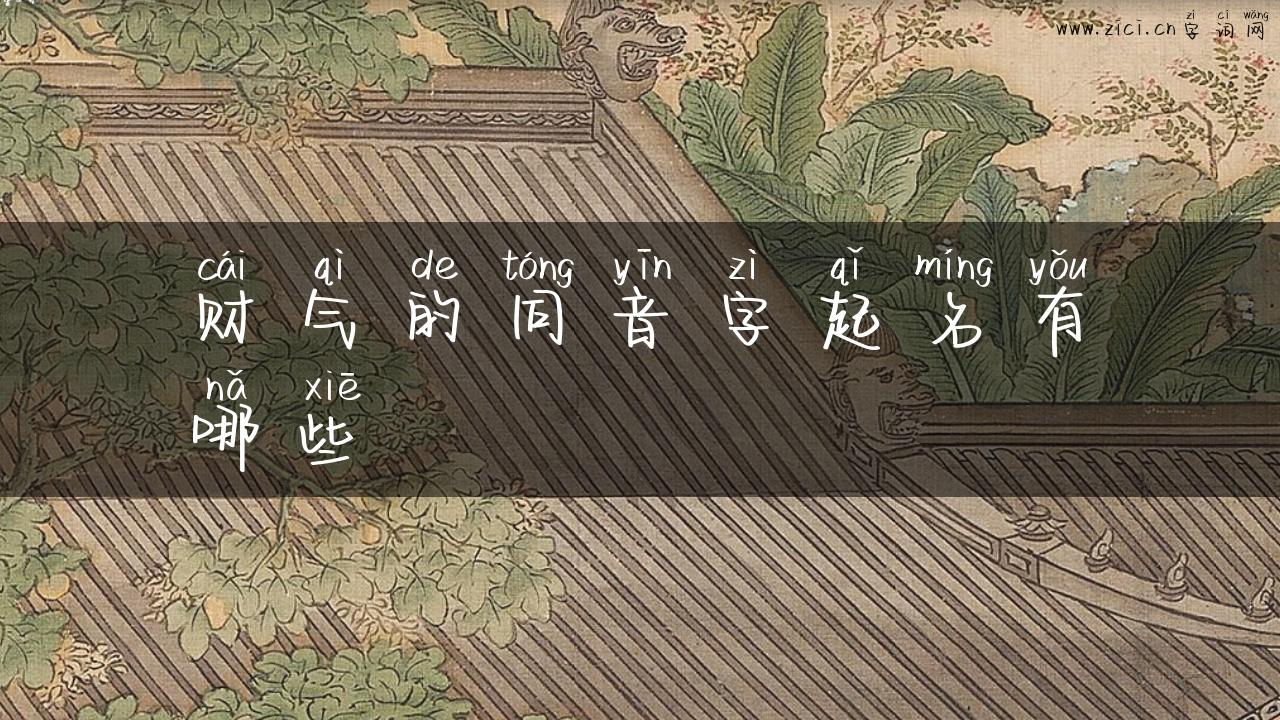 zì cí wǎng
www.zici.cn 字 词 网
cái qì de tóng yīn zì qǐ míng yǒu
财 气 的 同 音 字 起 名 有
nǎ xiē
哪 些